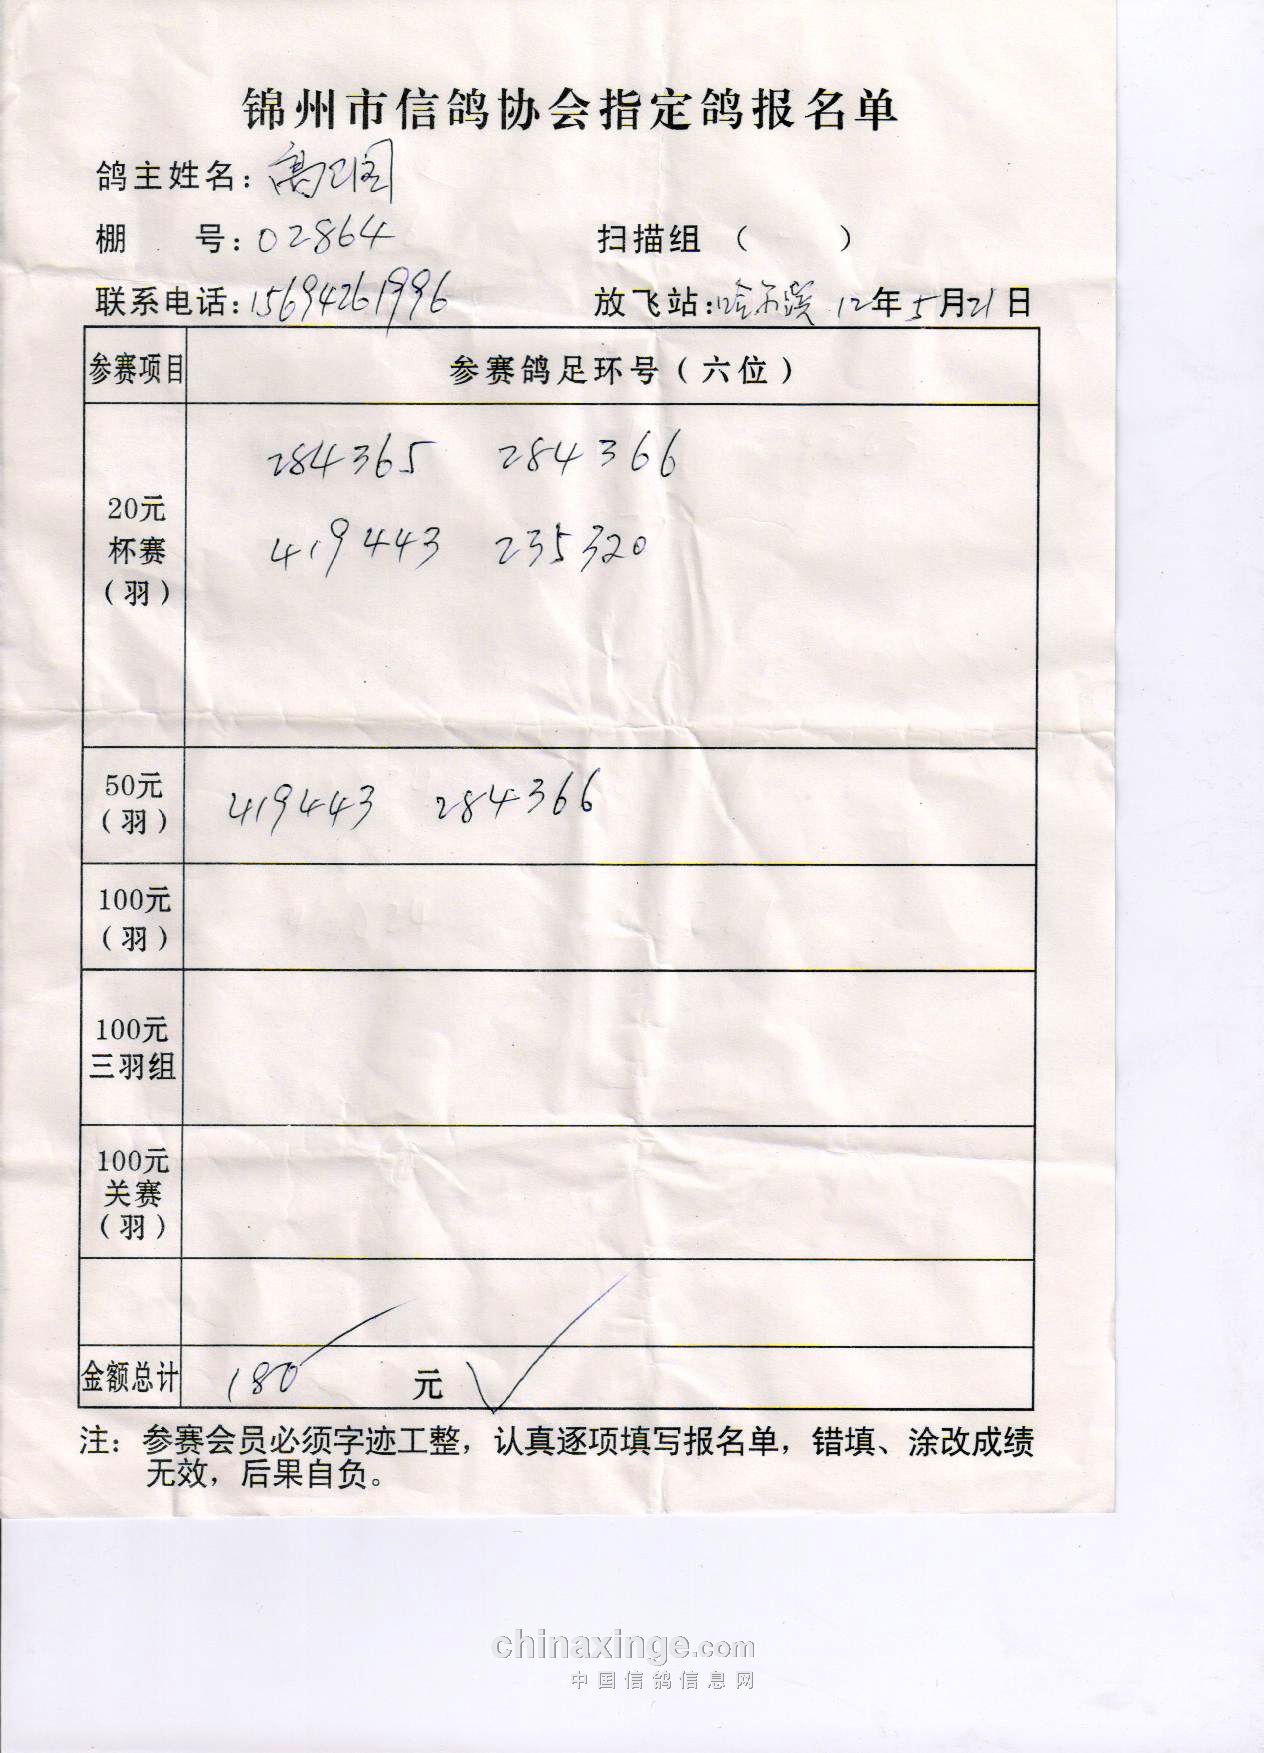 锦州市信鸽协会指定鸽报名单
鸽主姓名：高
棚 号：02864 扫描组（ ）
联系电话：15694261996 放飞站：哈尔滨 12年5月21日
参赛项目 参赛鸽足环号（六位）
20元
杯赛
（羽）
284365 284366
419443 235320
50元
（羽）
419443 284366
100元
（羽）
100元
三羽组
100元
关赛
（羽）
金额总计 180 元
注：参赛会员必须字迹工整，认真逐项填写报名单，错填、涂改成绩
无效，后果自负。
chinaxinge.com
中国信鸽信息网